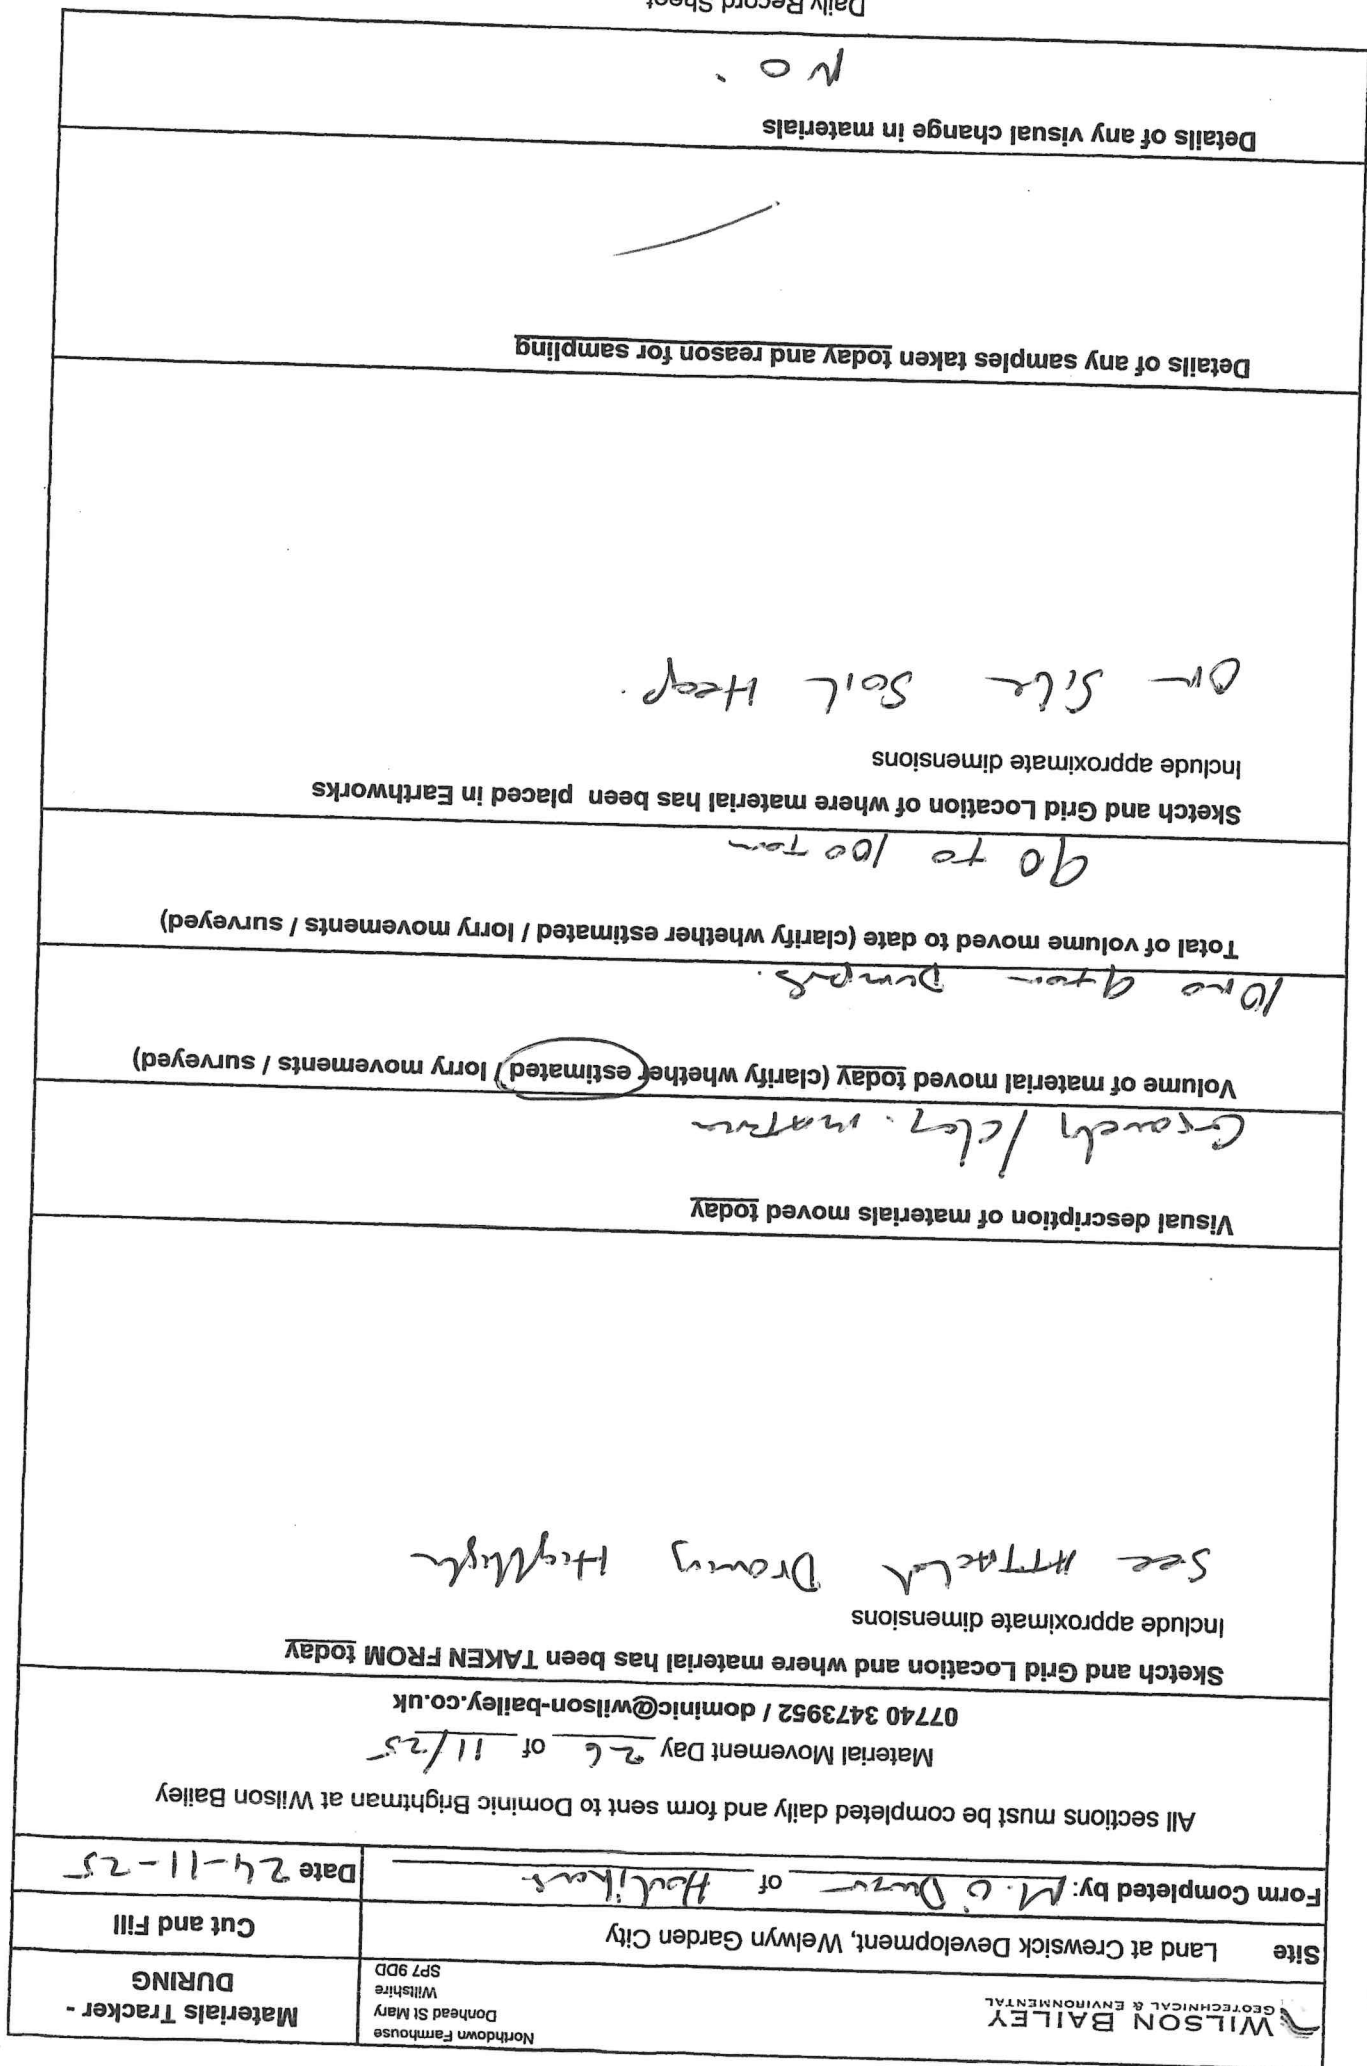 WILSON BAILEY
GEOTECHNICAL & ENVIRONMENTAL
Northdown Farmhouse
Donhead St Mary
Wiltshire
SP7 9DD
Materials Tracker -
DURING
Site Land at Crewsick Development, Welwyn Garden City
Cut and Fill
Form Completed by: M. O of
Date 24-11-25
All sections must be completed daily and form sent to Dominic Brightman at Wilson Bailey
Material Movement Day 26 of 11/25
07740 3473952 / dominic@wilson-bailey.co.uk
Sketch and Grid Location and where material has been TAKEN FROM today
Include approximate dimensions
See Drawing
Visual description of materials moved today
Volume of material moved today (clarify whether estimated / lorry movements / surveyed)
10 no 9 ton
Total of volume moved to date (clarify whether estimated / lorry movements / surveyed)
90 to 100 Ton
Sketch and Grid Location of where material has been placed in Earthworks
Include approximate dimensions
On Site Soil Heap.
Details of any samples taken today and reason for sampling
Details of any visual change in materials
NO.
Daily Record Sheet